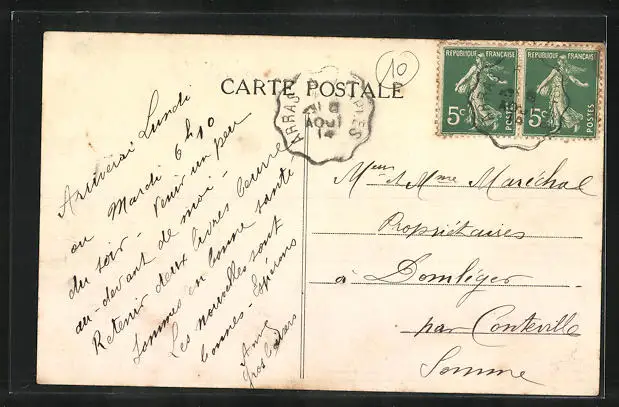 CARTE POSTALE
10
RÉPUBLIQUE FRANÇAISE
5c
POSTES
RÉPUBLIQUE FRANÇAISE
5c
POSTES
ARRAS
31 8
AOUT
14
Arriverai Lundi
ou Mardi 6h10
du soir - Venir un peu
au-devant de moi -
Retenir deux livres beurre
Sommes en bonne santé -
Les nouvelles sont
bonnes - Espérons
Amy
Gros baisers
Meur et Mme Maréchal
Propriétaires
à Domléger
par Conteville
Somme